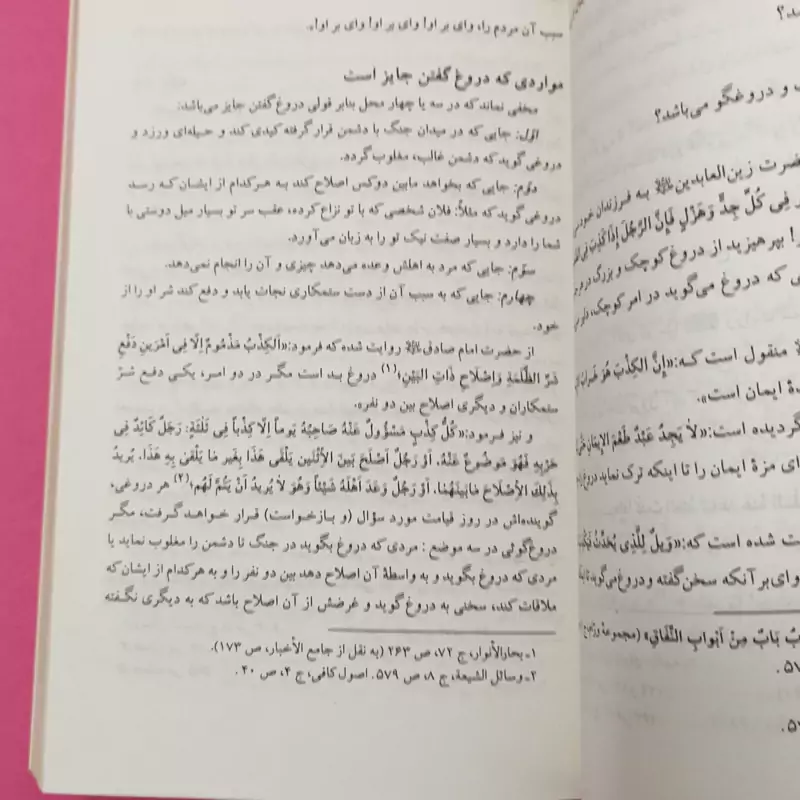 شد؟
و دروغگو می‌باشد؟
حضرت زین‌العابدین به فرزندان خود
فِی کُلِّ جِدٍّ وَهَزْلٍ فَإِنَّ الرَّجُلَ إِذَا کَذَبَ فِی
بپرهیزید از دروغ کوچک و بزرگ در
ی که دروغ می‌گوید در امر کوچک،
منقول است که: «إِنَّ الکِذْبَ هُوَ خَرَابُ
ایمان است».
گردیده است: «لاٰ یَجِدُ عَبْدٌ طَعْمَ الإیمَانِ
ای مزهٔ ایمان را تا اینکه ترک نماید دروغ
ت شده است که: «وَیْلٌ لِلَّذِی یُحَدِّثُ
وای بر آنکه سخن گفته و دروغ می‌گوید
بَابٌ مِنْ أَبْوَابِ النِّفَاقِ» (مجموعهٔ
سبب آن مردم را، وای بر او! وای بر او! وای بر او!».
مواردی که دروغ گفتن جایز است
مخفی نماند که در سه یا چهار محل بنابر قولی دروغ گفتن جایز می‌باشد:
اوّل: جایی که در میدان جنگ با دشمن قرار گرفته کیدی کند و حیله‌ای ورزد و
دروغی گوید که دشمن غالب، مغلوب گردد.
دوّم: جایی که بخواهد مابین دوکس اصلاح کند به هرکدام از ایشان که رسد
دروغی گوید که مثلاً: فلان شخصی که با تو نزاع کرده، عقب سر تو بسیار میل دوستی با
شما را دارد و بسیار صفت نیک تو را به زبان می‌آورد.
سوّم: جایی که مرد به اهلش وعده می‌دهد چیزی و آن را انجام نمی‌دهد.
چهارم: جایی که به سبب آن از دست ستمکاری نجات یابد و دفع کند شر او را از
خود.
از حضرت امام صادق روایت شده که فرمود: «اَلکِذْبُ مَذْمُومٌ إِلاّٰ فِی أَمْرَینِ دَفْعِ
شَرِّ الظَّلَمَةِ وَإِصْلاٰحِ ذٰاتِ البَیْنِ؛(۱) دروغ بد است مگر در دو امر، یکی دفع شرّ
ستمکاران و دیگری اصلاح بین دو نفر».
و نیز فرمود: «کُلُّ کِذْبٍ مَسْؤُولٌ عَنْهُ صَاحِبُهُ یَوماً إِلاّٰ کِذْباً فِی ثَلٰثَةٍ: رَجُلٌ کَائِدٌ فِی
حَرْبِهِ فَهُوَ مَوضُوعٌ عَنْهُ. أَوْ رَجُلٌ أَصْلَحَ بَینَ الإثْنَینِ یَلْقَی هَذَا بِغَیرِ مَا یَلْقَی بِهِ هَذَا. یُرِیدُ
بِذَلِكَ الإصْلاٰحَ مَابَینَهُمَا. أَوْ رَجُلٌ وَعَدَ أَهْلَهُ شَیْئاً وَهُوَ لاٰ یُرِیدُ أَنْ یَتُمَّ لَهُم؛(۲) هر دروغی،
گوینده‌اش در روز قیامت مورد سؤال (و بازخواست) قرار خواهد گرفت، مگر
دروغ‌گوئی در سه موضع: مردی که دروغ بگوید در جنگ تا دشمن را مغلوب نماید یا
مردی که دروغ بگوید و به واسطهٔ آن اصلاح دهد بین دو نفر را و به هرکدام از ایشان که
ملاقات کند، سخنی به دروغ گوید و غرضش از آن اصلاح باشد که به دیگری نگفته
۱ـ بحارالأنوار، ج ۷۲، ص ۲۶۳ (به نقل از جامع الأخبار، ص ۱۷۳).
۲ـ وسائل الشیعة، ج ۸، ص ۵۷۹. اصول کافی، ج ۴، ص ۴۰.